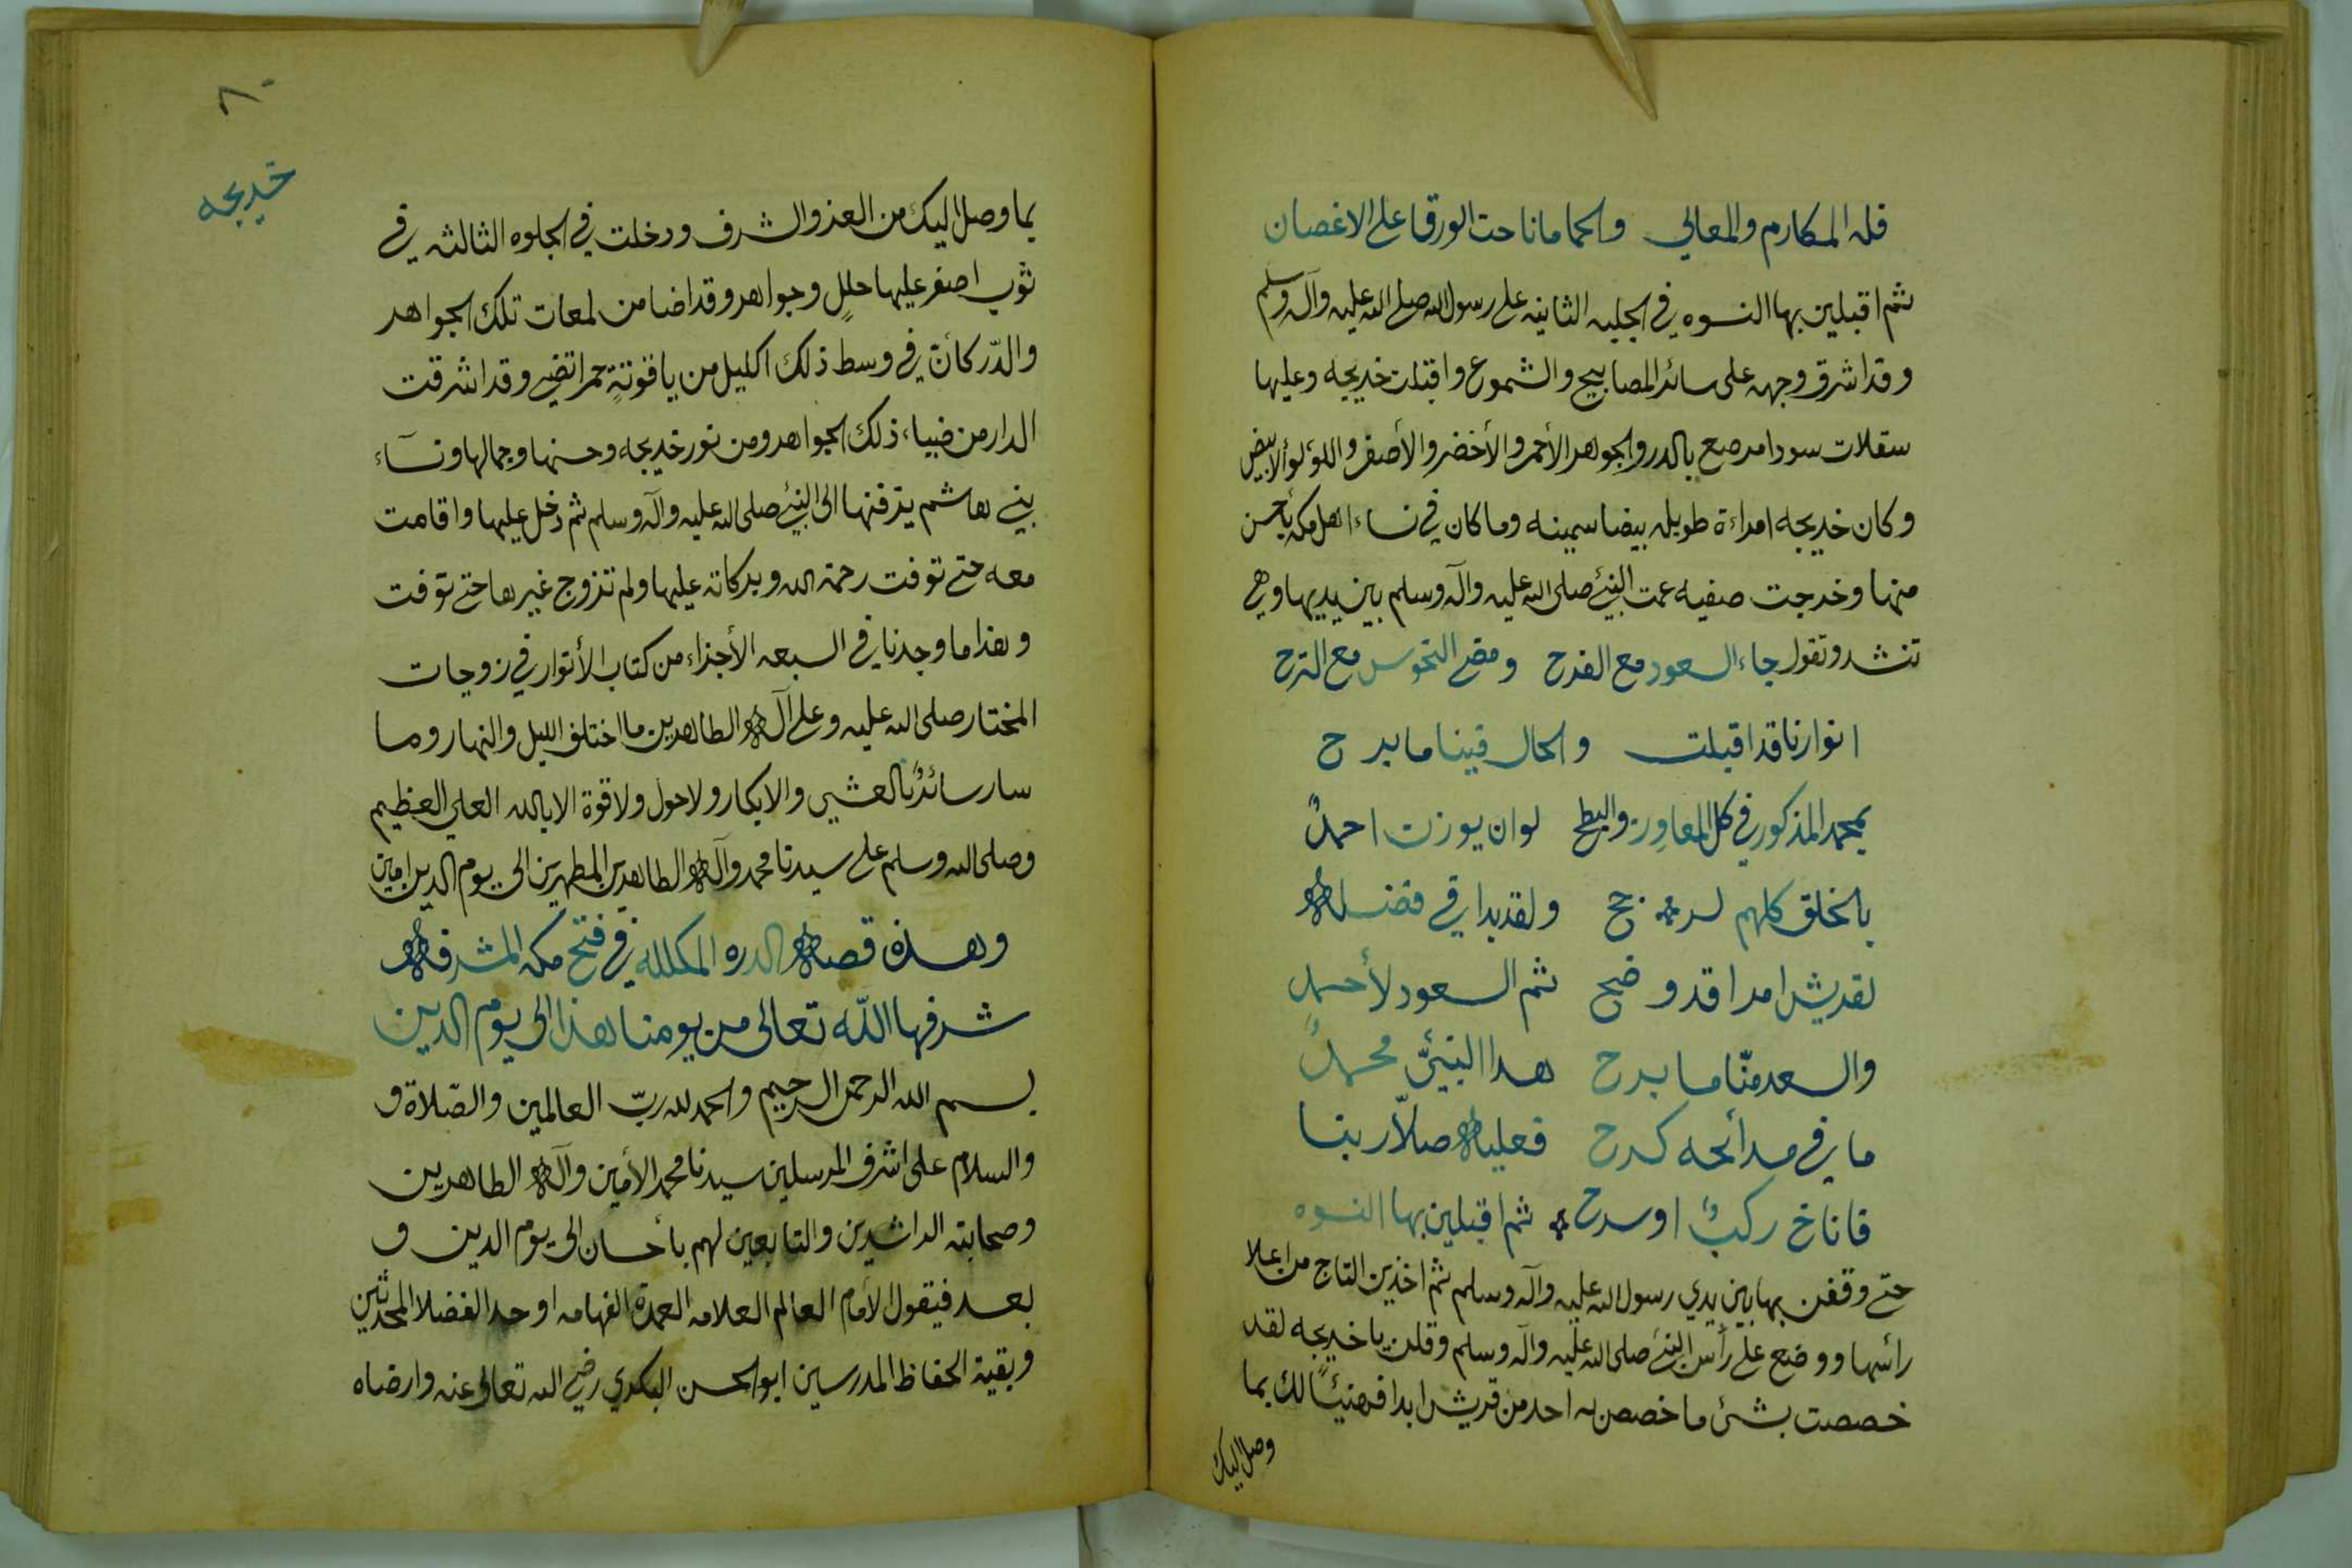 فله المكارم والمعالي والحما ما ناحت الورقا على الاغصان
ثم اقبلين بها النسوه في الجليه الثانيه على رسول الله صلى الله عليه وآله وسلم
وقد اشرق وجهه على سائر المصابيح والشموع واقبلت خديجه وعليها
سقلات سودا مرصع بالدر والجوهر الأحمر والأخضر والأصفر واللؤلؤ الابيض
وكان خديجه امراءة طويله بيضا سمينه وما كان في نساء اهل مكه بأحسن
منها وخرجت صفيه عمت النبئ صلى الله عليه وآله وسلم بين يديها وهي
تنشد وتقول جاء السعود مع الفرح ومضى النحوس مع الترح
انوارنا قد اقبلت والحال فينا ما برح
بمحمد المذكور في كل المعاور والبطح لو ان يوزن احمدٌ
بالخلق كلهم لرجح ولقد بدا في فضله
لقريش امرا قد وضح ثم السعود لأحمدٍ
والسعد منّا ما برح هدا النبئُ محمدٌ
ما في مدائحه كدح فعليه صلاّ ربنا
فاناخ ركبٌ او سرح ثم اقبلين بها النسوه
حتى وقفن بها بين يدي رسول الله عليه وآله وسلم ثم اخذين التاج من اعلا
رائسها ووضع على رأس النبئ صلى الله عليه وآله وسلم وقلن يا خديجه لقد
خصصت بشئ ما خصص به احد من قريش ابدا فهنيئًا لك بما
وصل اليك
٨٠
خديجه
بما وصل اليك من العز والشرف ودخلت في الجلوه الثالثه في
ثوب اصفر عليها حللٍ وجواهر وقد اضا من لمعات تلك الجواهر
والدّر كأنّ في وسط ذلك اكليل من ياقوتةٍ حمرا تضي وقد اشرقت
الدار من ضياء ذلك الجواهر ومن نور خديجه وحسنها وجمالها ونسآء
بني هاشم يزفنها الى النبئ صلى الله عليه وآله وسلم ثم دخل عليها واقامت
معه حتى توفت رحمة الله وبركاته عليها ولم تزوج غيرها حتى توفت
وهذا ما وجدنا في السبعه الأجزاء من كتاب الأنوار في زوجات
المختار صلى الله عليه وعلى آله الطاهرين ما اختلف الليل والنهار وما
سار سائرٌ بالعشي والابكار ولا حول ولا قوة الا بالله العلي العظيم
وصلى الله وسلم على سيدنا محمد وآله الطاهرين المطهرين الى يوم الدين امين
وهذه قصة الدره المكلله في فتح مكه المشرفه
شرفها اللّه تعالى من يومنا هذا الى يوم الدين
بسم الله الرحمن الرحيم والحمد لله ربّ العالمين والصّلاة و
والسلام على اشرف المرسلين سيدنا محمد الأمين وآله الطاهرين
وصحابته الراشدين والتابعين لهم بأحسان الى يوم الدين و
بعد فيقول الأمام العالم العلامه العمدة الفهامه اوحد الفضلا المحدثين
وبقية الحفاظ المدرسين ابو الحسن البكري رضي الله تعالى عنه وارضاه